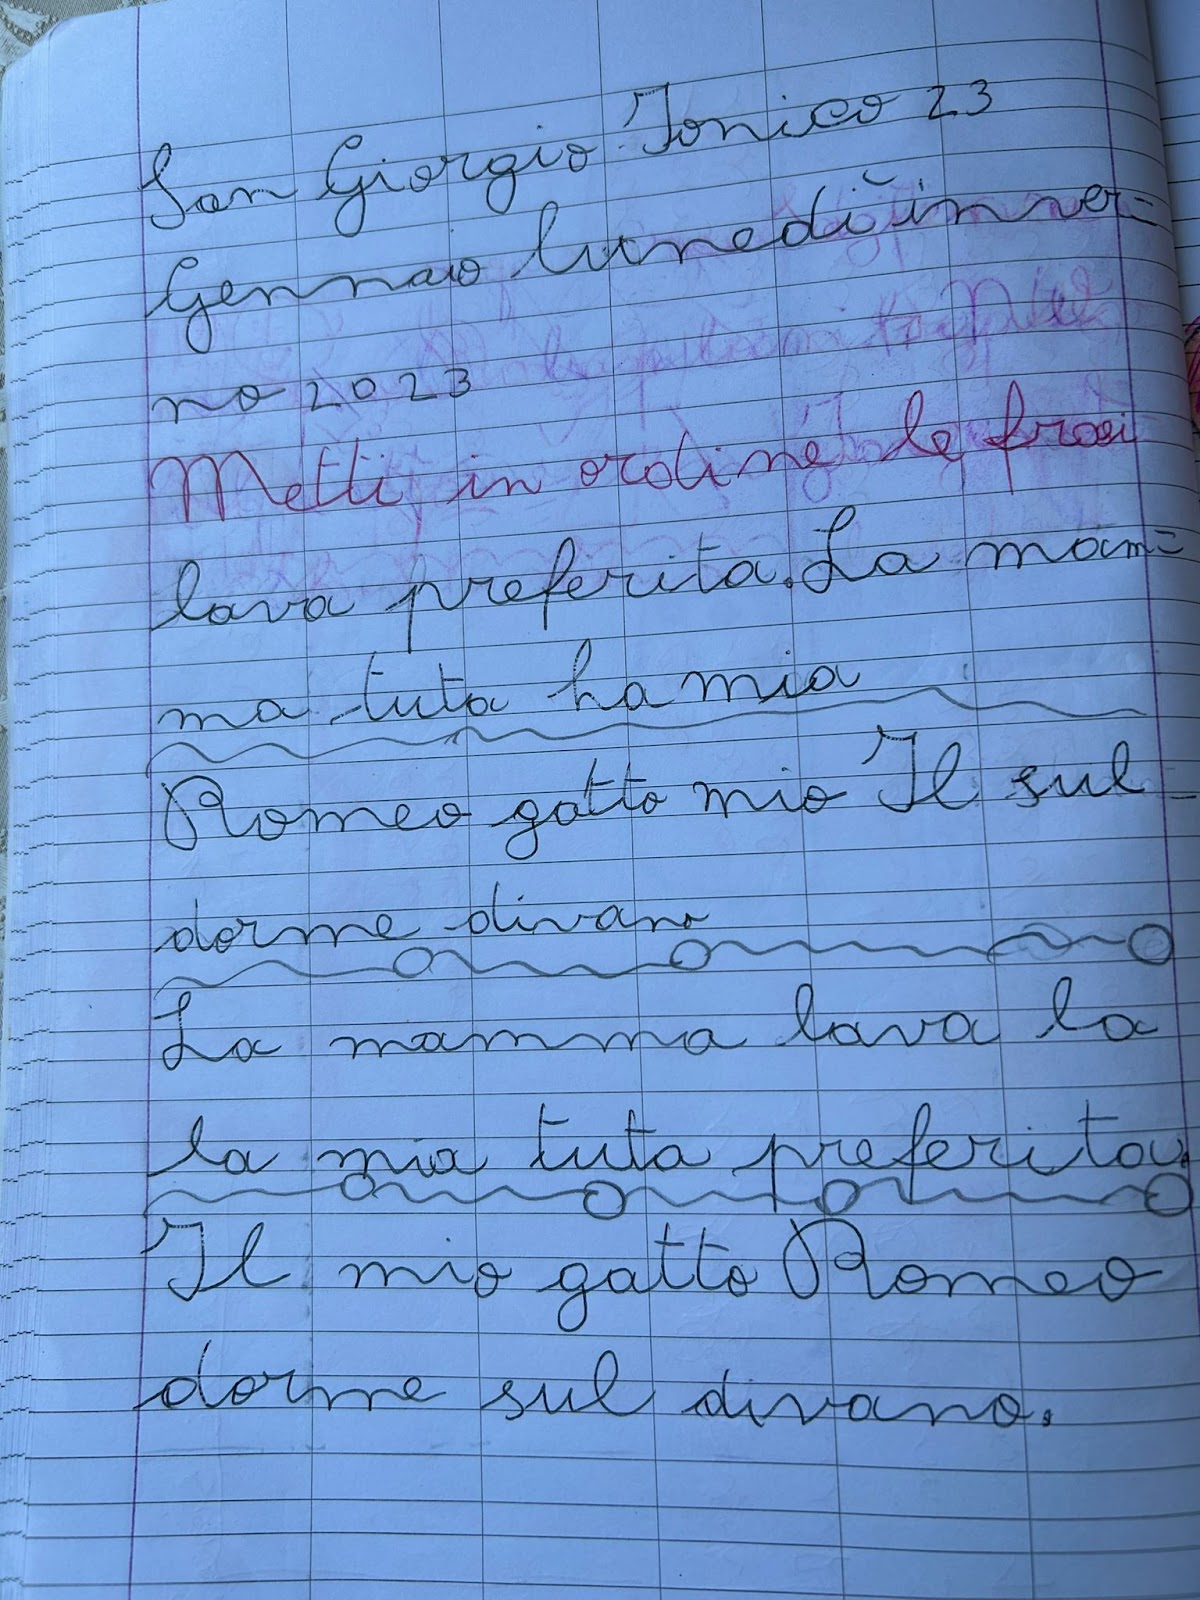 San Giorgio Jonico 23
Gennaio lunedì inver=
no 2023
Metti in ordine le frasi
lava preferita. La mam=
ma tuta ha mia
Romeo gatto mio Il sul
dorme divano
La mamma lava la
la mia tuta preferita.
Il mio gatto Romeo
dorme sul divano.